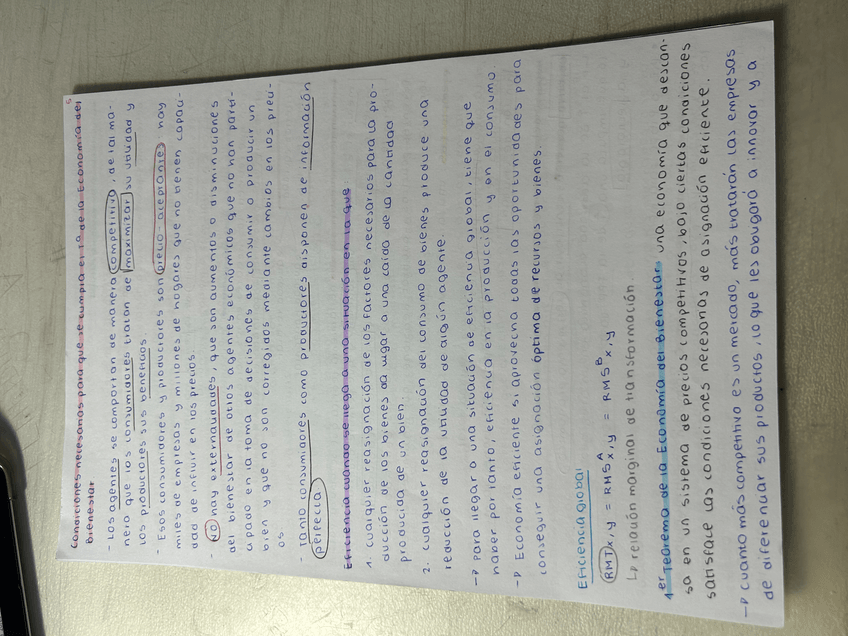 5
Condiciones necesarias para que se cumpla el 1º de la Economía del
Bienestar
- Los agentes se comportan de manera competitiva, de tal ma-
nera que los consumidores tratan de maximizar su utilidad y
los productores sus beneficios
- Esos consumidores y productores son precio-aceptantes: hay
miles de empresas y millones de hogares que no tienen capaci-
dad de influir en los precios.
- No hay externalidades, que son aumentos o disminuciones
del bienestar de otros agentes económicos que no han parti-
cipado en la toma de decisiones de consumir o producir un
bien y que no son corregidos mediante cambios en los preci-
os
- Tanto consumidores como productores disponen de información
perfecta
Eficiencia cuando se llega a una situación en la que:
1. cualquier reasignación de los factores necesarios para la pro-
ducción de los bienes da lugar a una caída de la cantidad
producida de un bien.
2. cualquier reasignación del consumo de bienes produce una
reducción de la utilidad de algún agente.
→ Para llegar a una situación de eficiencia global, tiene que
haber, por tanto, eficiencia en la producción y en el consumo.
→ Economía eficiente si aprovecha todas las oportunidades para
conseguir una asignación óptima de recursos y bienes.
Eficiencia global
RMTx,y = RMS^A x,y = RMS^B x,y
↳ relación marginal de transformación.
1er Teorema de la Economía del Bienestar: una economía que descan-
sa en un sistema de precios competitivos, bajo ciertas condiciones
satisface las condiciones necesarias de asignación eficiente.
→ cuanto más competitivo es un mercado, más tratarán las empresas
de diferenciar sus productos, lo que les obligará a innovar y a